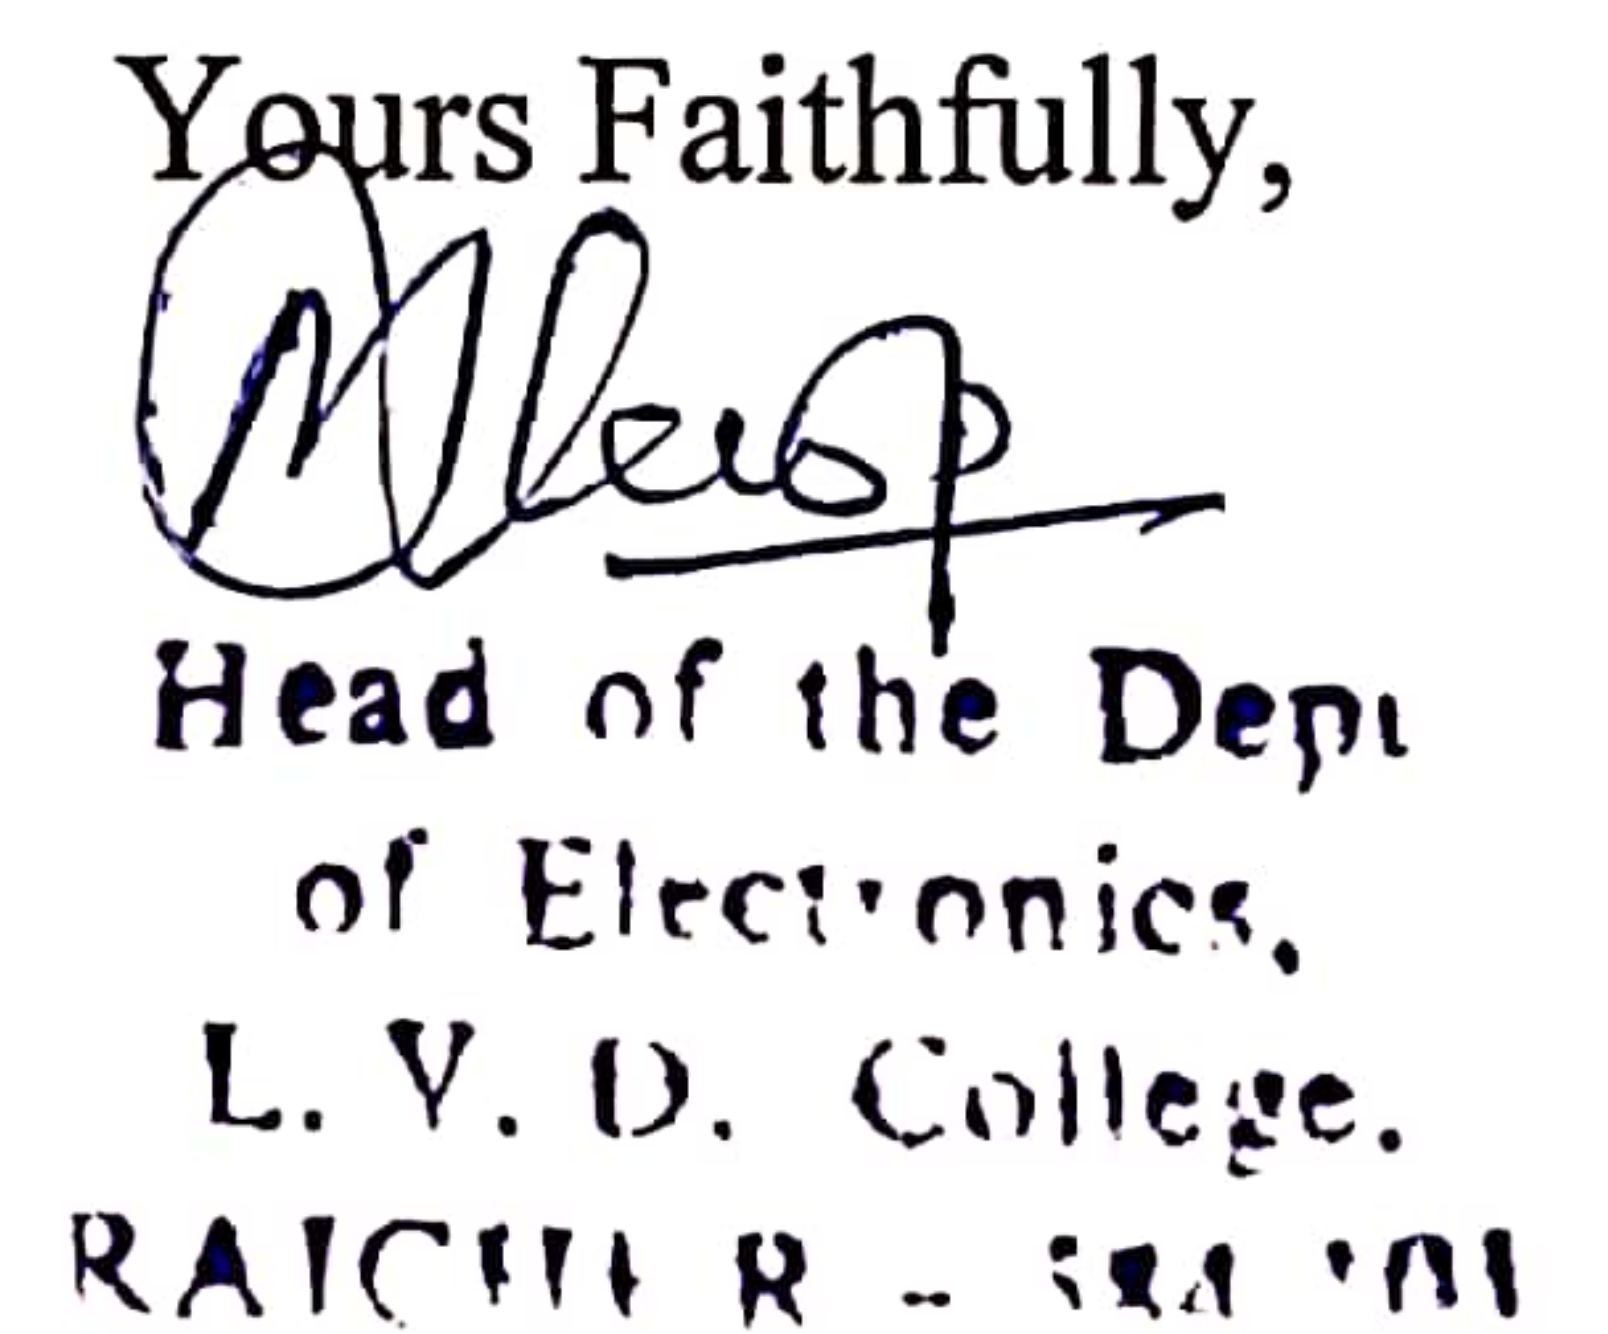 Yours Faithfully,
Head of the Dept
of Electronics,
L. V. D. College.
RAICHUR -